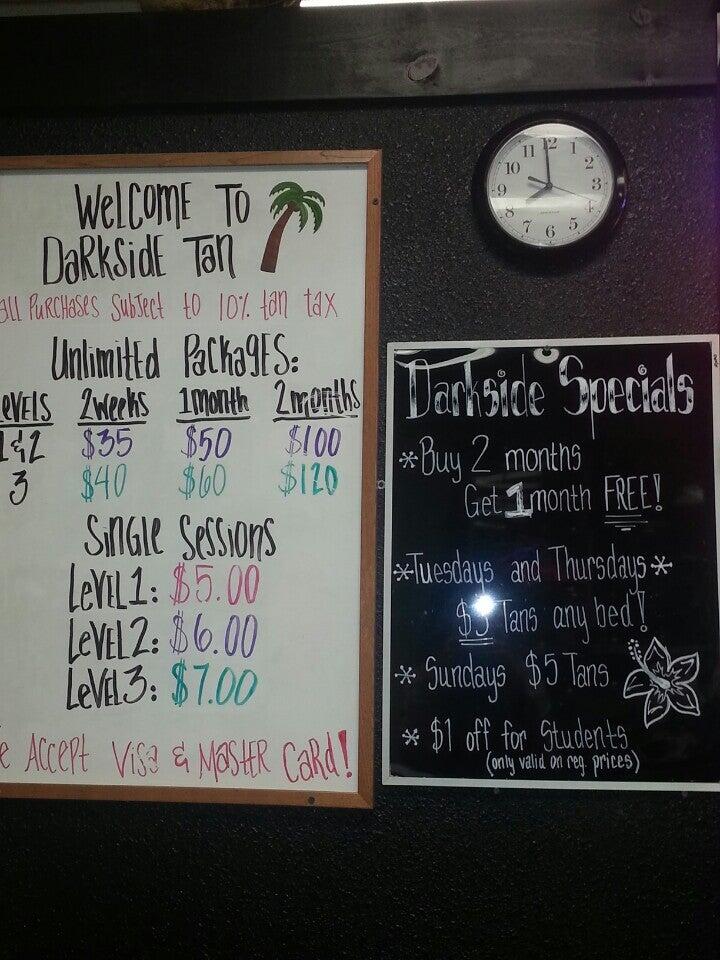 WELCOME TO
DARKSIDE TAN
all PURCHASES SUBJECT to 10% tan tax
UNLIMITED PACKAGES:
LEVELS 2weeks 1month 2months
1&2 $35 $50 $100
3 $40 $60 $120
SINGLE SESSIONS
LEVEL1: $5.00
LEVEL2: $6.00
LEVEL3: $7.00
ACCEPT VISA & MASTER CARD!
12 1 2 3 4 5 6 7 8 9 10 11
Darkside Specials
*Buy 2 months
Get 1 month FREE!
*Tuesdays and Thursdays*
Tans any bed!
* Sundays $5 Tans
* $1 off for Students
(only valid on reg. prices)